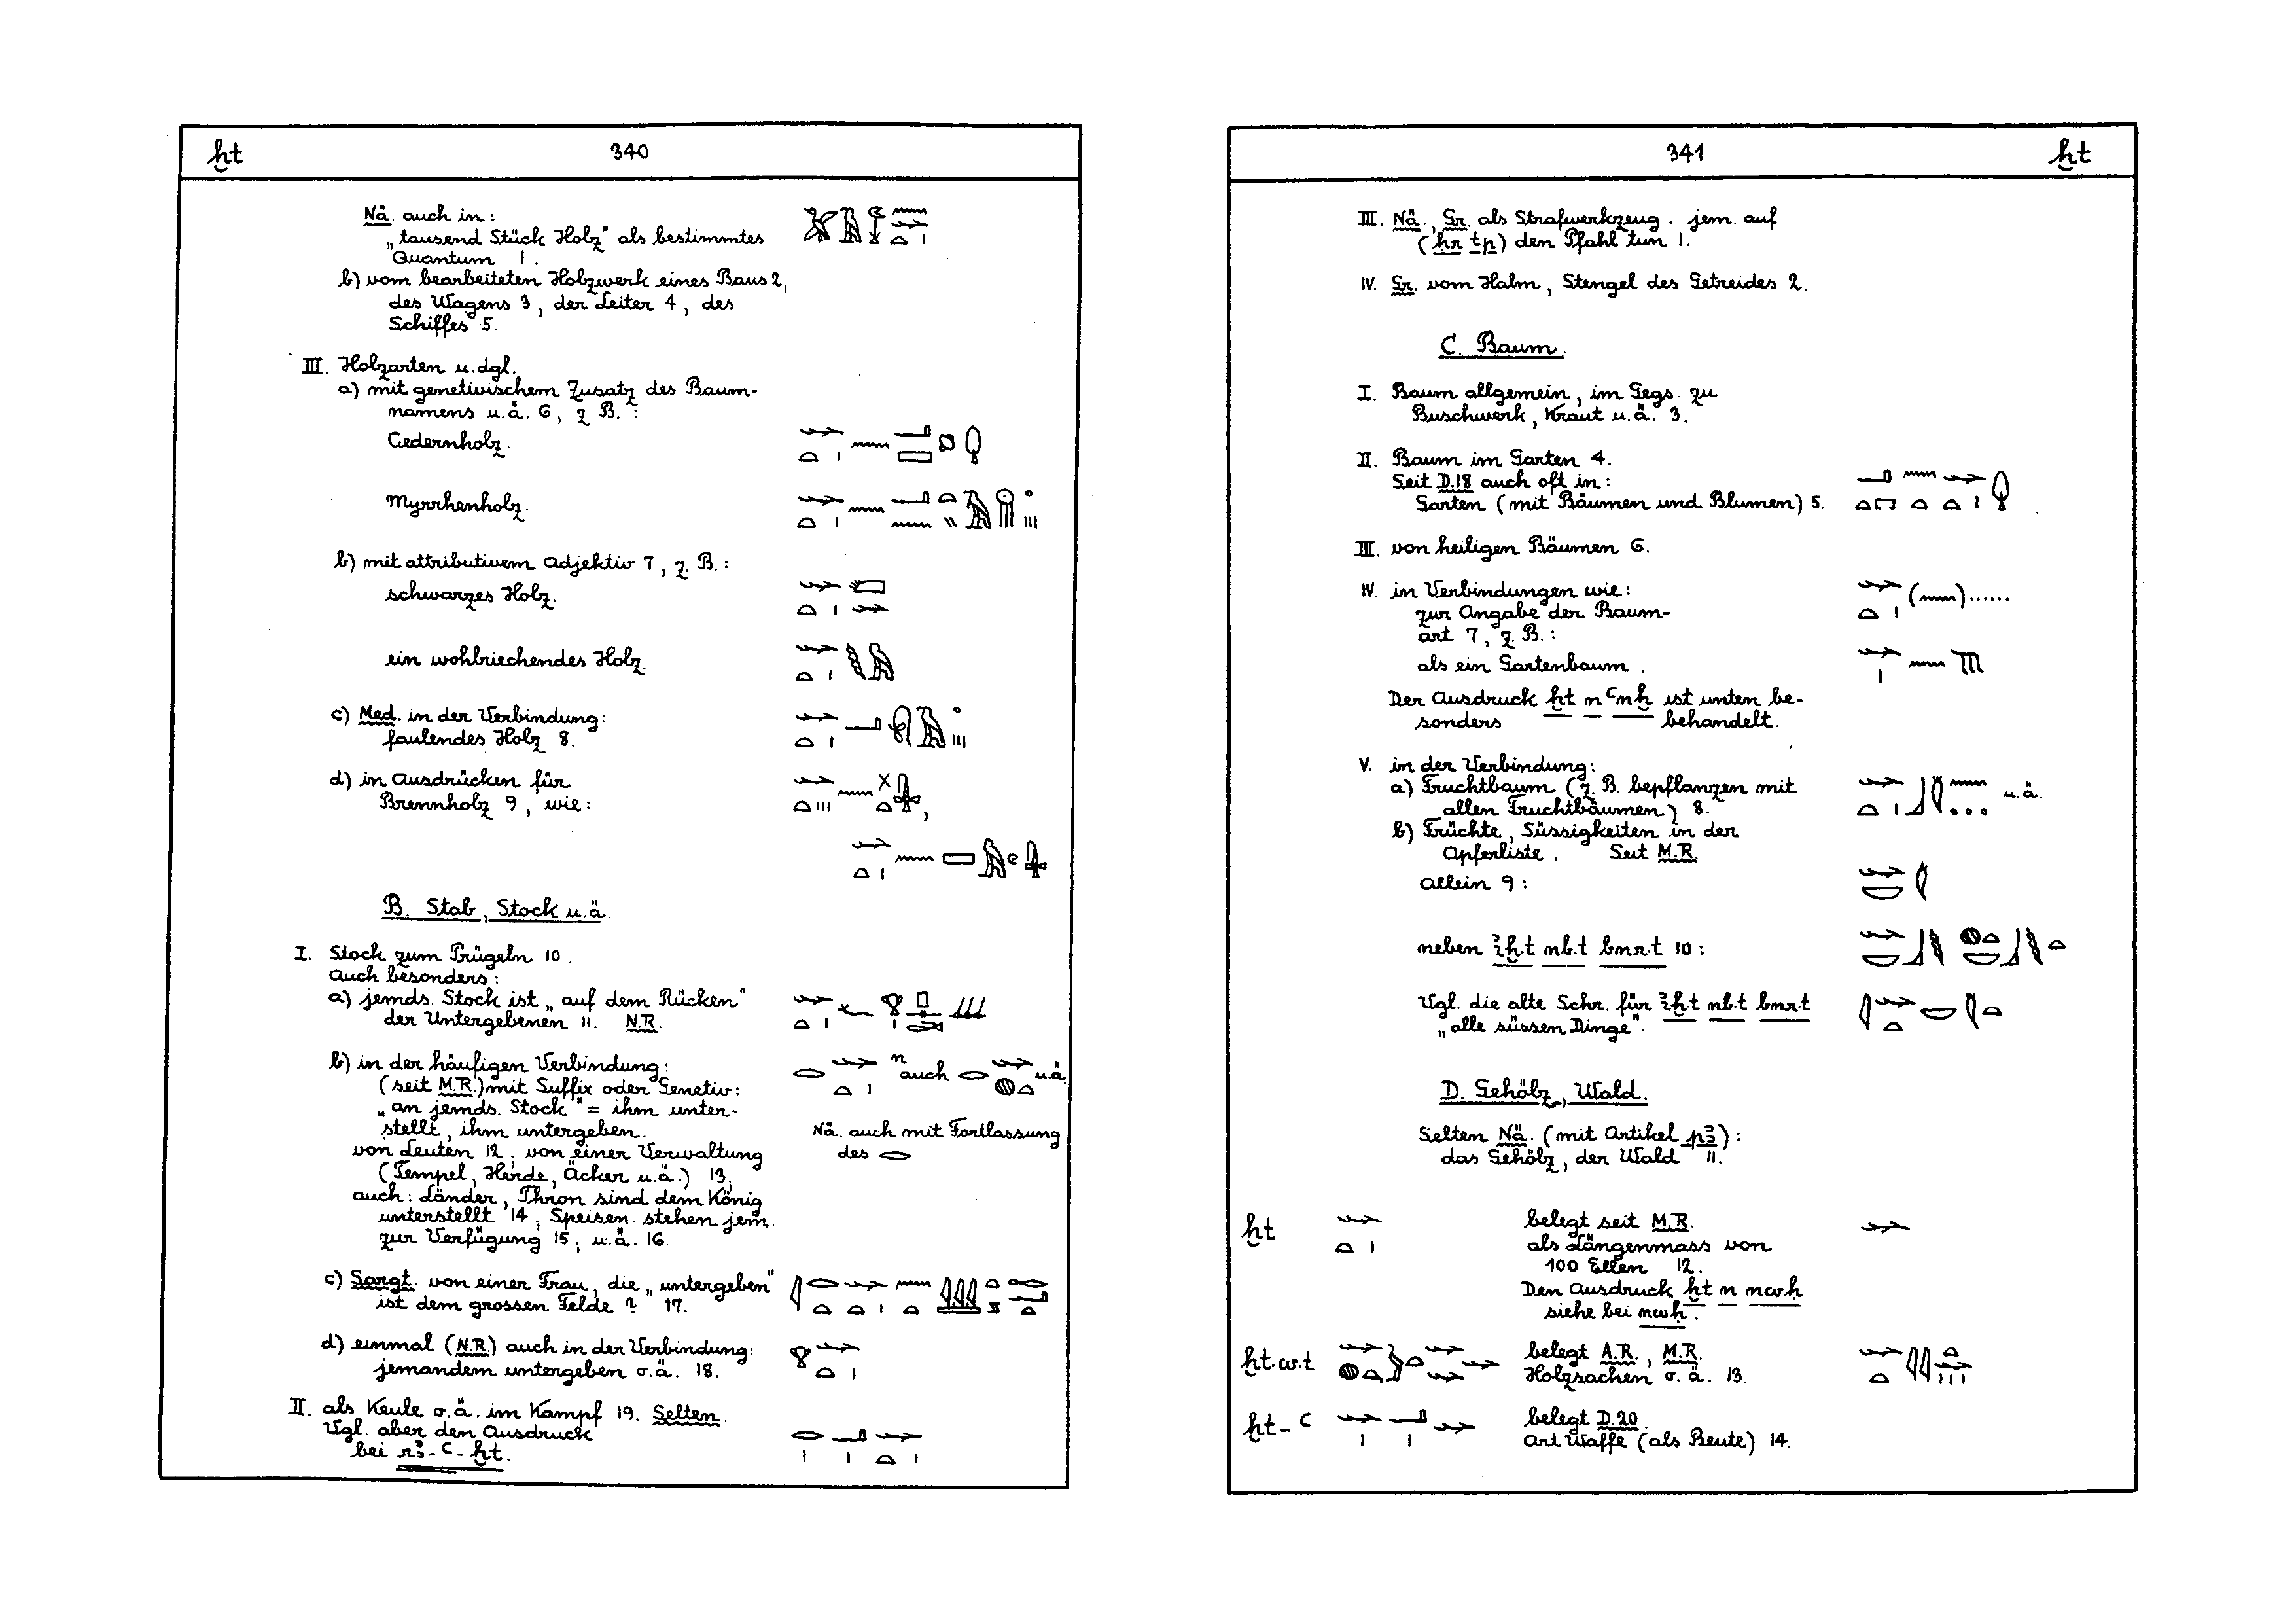 ẖt 340
Nä. auch in:
„tausend Stück Holz" als bestimmtes
Quantum 1.
b) vom bearbeiteten Holzwerk eines Baus 2,
des Wagens 3, der Leiter 4, des
Schiffes 5.
III. Holzarten u.dgl.
a) mit genetivischem Zusatz des Baum-
namens u.ä. 6, z.B.:
Cedernholz.
Myrrhenholz.
b) mit attributivem Adjektiv 7, z.B.:
schwarzes Holz.
ein wohlriechendes Holz.
c) Med. in der Verbindung:
faulendes Holz 8.
d) in Ausdrücken für
Brennholz 9, wie:
B. Stab, Stock u.ä.
I. Stock zum Prügeln 10.
Auch besonders:
a) jemds. Stock ist „auf dem Rücken"
der Untergebenen 11. N.R.
b) in der häufigen Verbindung:
(seit M.R.) mit Suffix oder Genetiv: auch u.ä.
„an jemds. Stock" = ihm unter-
stellt, ihm untergeben. Nä. auch mit Fortlassung
von Leuten 12; von einer Verwaltung des
(Tempel, Herde, Äcker u.ä.) 13;
auch: Länder, Thron sind dem König
unterstellt 14; Speisen stehen jem.
zur Verfügung 15; u.ä. 16.
c) Sargt. von einer Frau, die „untergeben"
ist dem grossen Felde ? 17.
d) einmal (N.R.) auch in der Verbindung:
jemandem untergeben o.ä. 18.
II. als Keule o.ä. im Kampf 19. Selten.
Vgl. aber den Ausdruck
bei rꜣ-ꜥ-ẖt.
341 ẖt
III. Nä., Gr. als Strafwerkzeug. jem. auf
(ḥr tp) den Pfahl tun 1.
IV. Gr. vom Halm, Stengel des Getreides 2.
C. Baum.
I. Baum allgemein, im Gegs. zu
Buschwerk, Kraut u.ä. 3.
II. Baum im Garten 4.
Seit D.18 auch oft in:
Garten (mit Bäumen und Blumen) 5.
III. von heiligen Bäumen 6.
IV. in Verbindungen wie: ( )......
zur Angabe der Baum-
art 7, z.B.:
als ein Gartenbaum.
Der Ausdruck ẖt n ꜥnḫ ist unten be-
sonders behandelt.
V. in der Verbindung:
a) Fruchtbaum (z.B. bepflanzen mit u.ä.
allen Fruchtbäumen) 8.
b) Früchte, Süssigkeiten in der
Opferliste. Seit M.R.
allein 9:
neben iḫ.t nb.t bnr.t 10:
Vgl. die alte Schr. für iḫ.t nb.t bnr.t
„alle süssen Dinge".
D. Gehölz, Wald.
Selten Nä. (mit Artikel pꜣ):
das Gehölz, der Wald 11.
ẖt belegt seit M.R.
als Längenmass von
100 Ellen 12.
Den Ausdruck ẖt n nwḥ
siehe bei nwḥ.
ẖt.w.t belegt A.R., M.R.
Holzsachen o.ä. 13.
ẖt-ꜥ belegt D.20
Art Waffe (als Beute) 14.